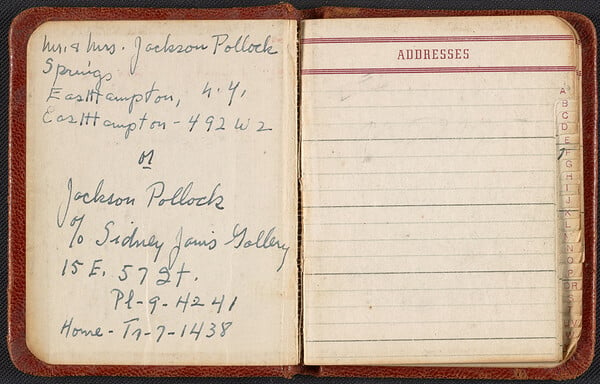 Mr. & Mrs. Jackson Pollock
Springs
EastHampton, N.Y.
EastHampton - 492 W 2
or
Jackson Pollock
c/o Sidney Janis Gallery
15 E. 57 St.
Pl-9-4241
Home - Tr-7-1438
ADDRESSES
A
B
C
D
E
F
G
H
I
J
K
L
N
O
P
QR